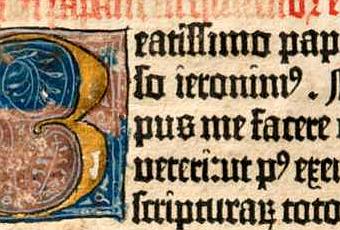 Beatissimo pap
so ieronimꝰ.
pus me facere
veteri: ut pꝰ exe
scripturaꝝ toto